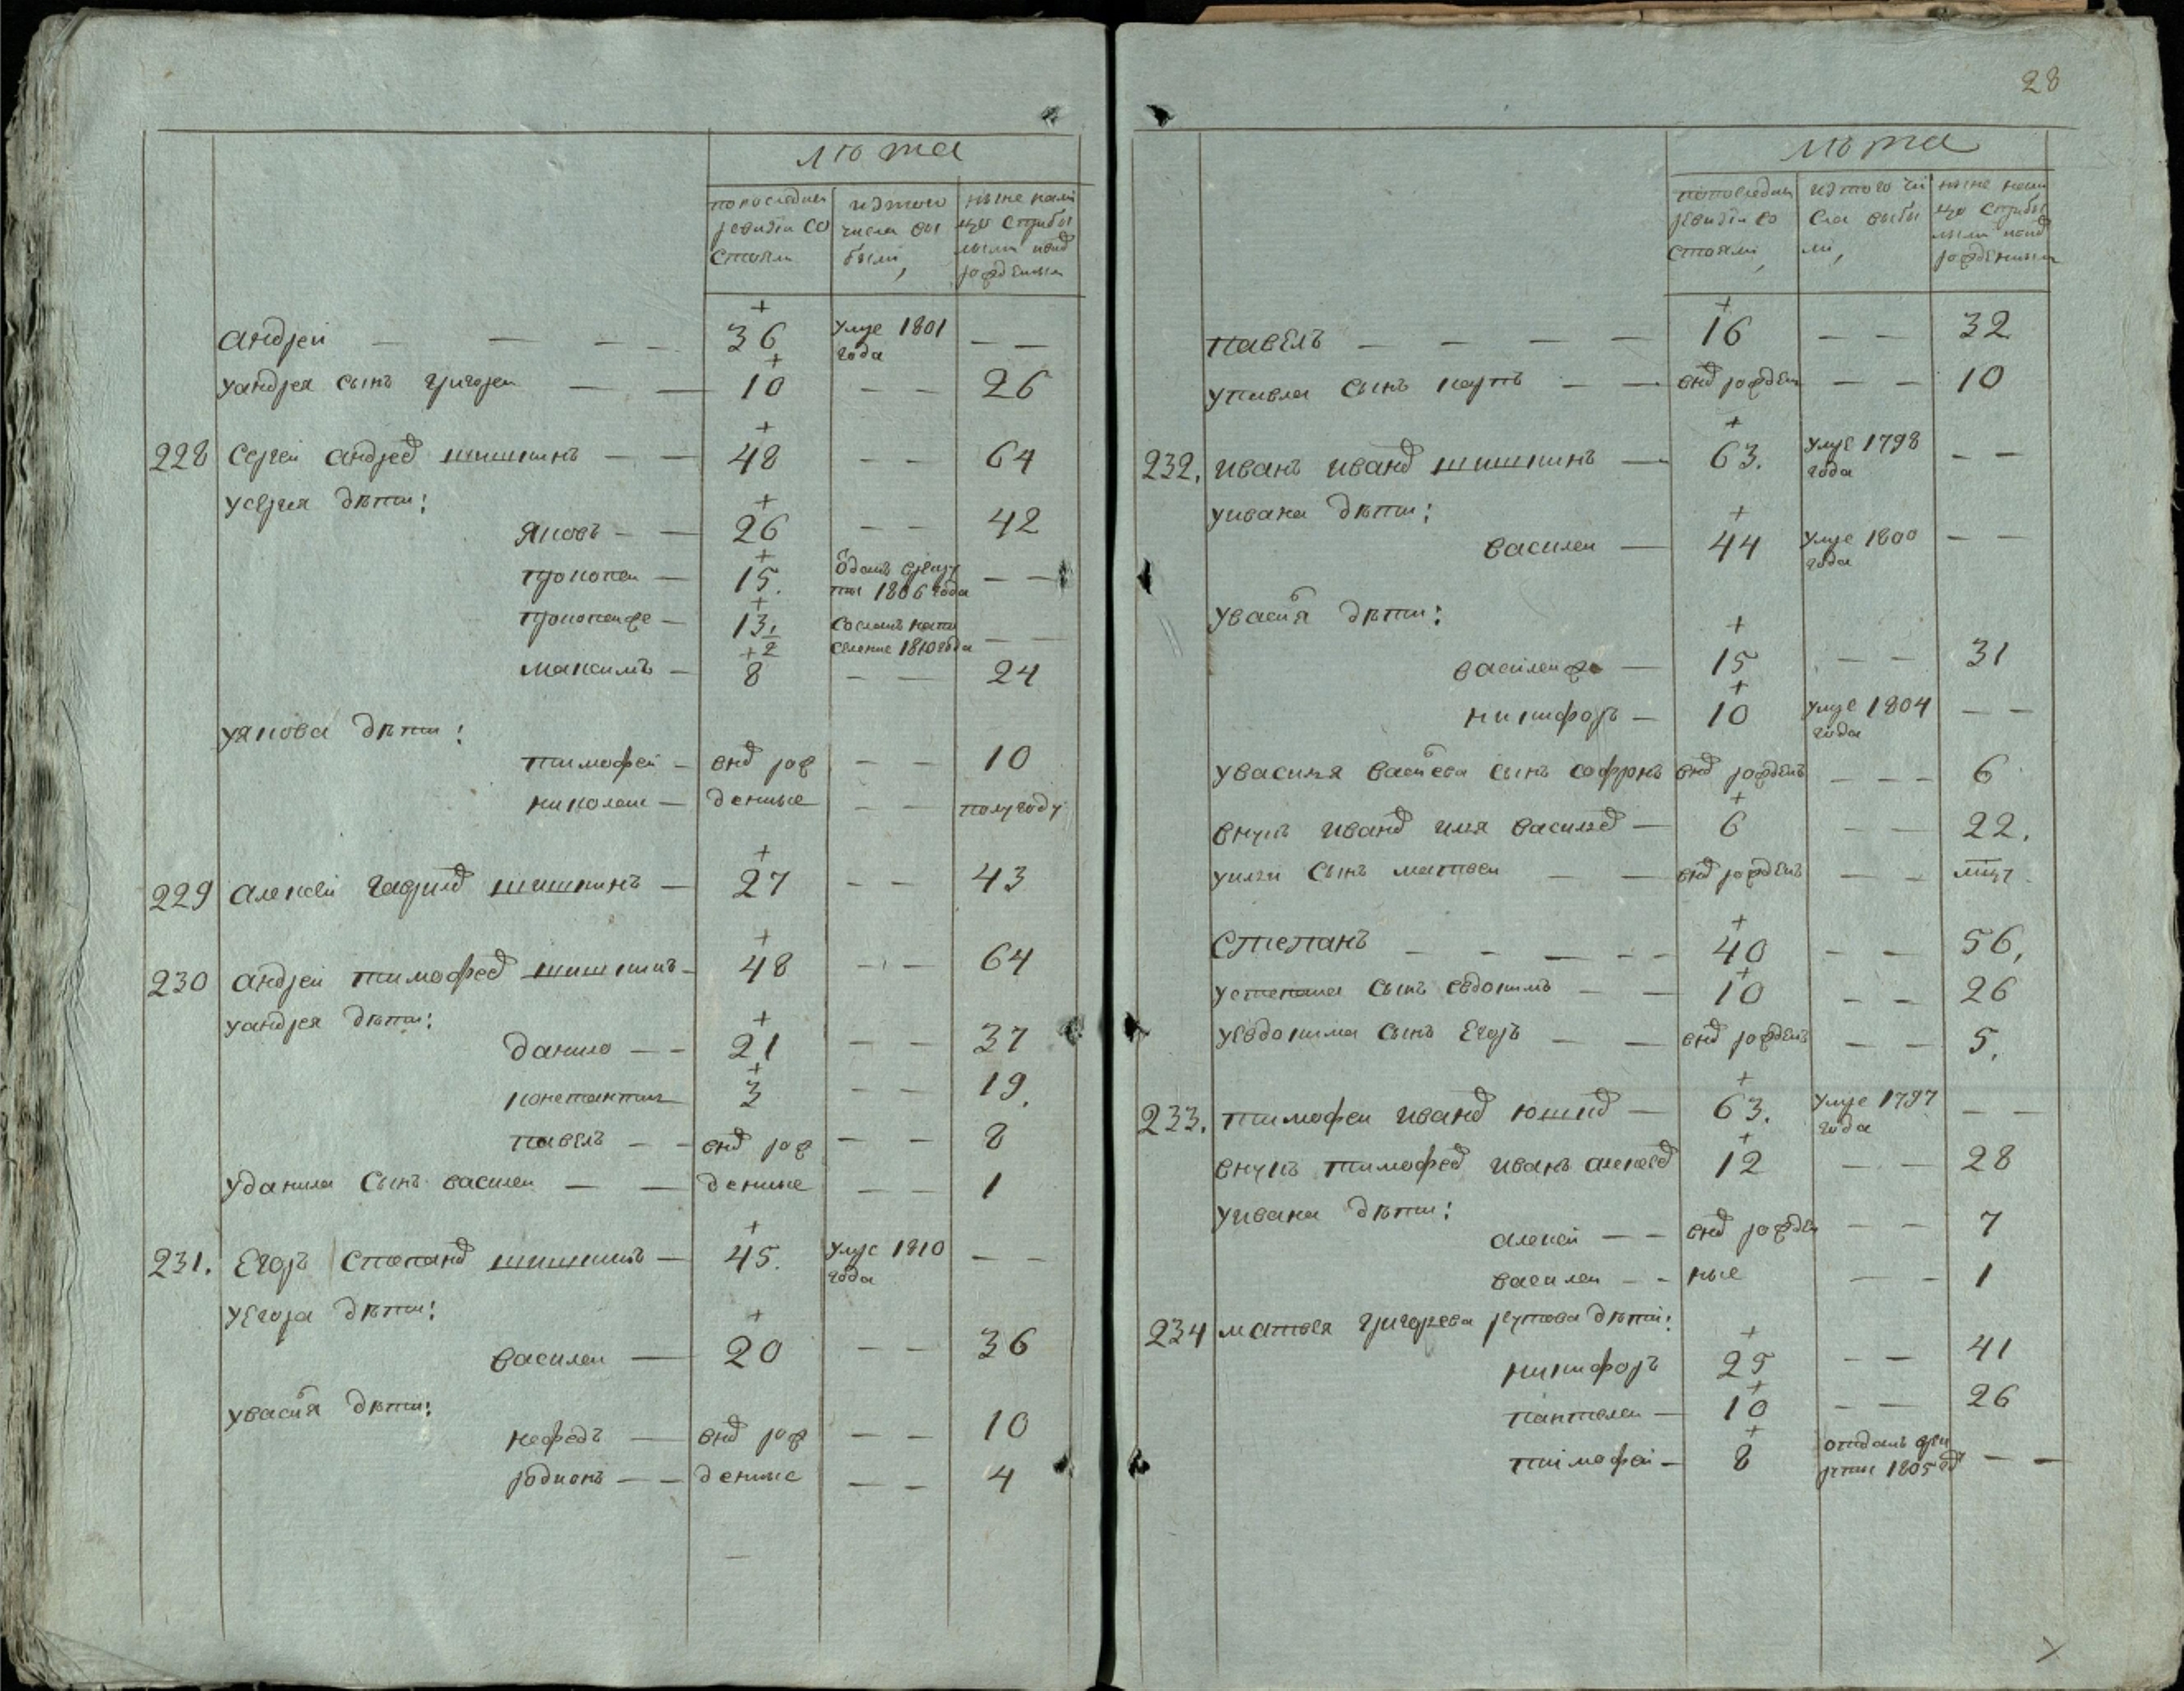 лѣта
по последней ревизiи состояли
изтого числа выбыли,
ныне налицо сприбылыми и внов рожденными
андрей — — — — 36 умре 1801 года — —
уандрея сынъ григорей — — 10 — — 26
228 сергей андреев шишкинъ — — 48 — — 64
усергея дѣти:
яковъ — — 26 — — 42
прокопей — 15. отданъ врекруты 1806 года — —
прокопей же — 13 1/2 сосланъ напоселение 1810 года — —
максимъ — 8 — — 24
уякова дѣти:
тимофей — внов рож — — 10
николай — денные — — полугоду
229 алексей гаврилов шишкинъ — 27 — — 43
230 андрей тимофеев шишкинъ — 48 — — 64
уандрея дѣти:
данило — — 21 — — 37
константинъ 3 — — 19.
павелъ — — внов рож — — 8
уданила сынъ василей — — денные — — 1
231. егоръ степанов шишкинъ — 45. умре 1810 года — —
уегора дѣти:
василей — 20 — — 36
увасиля дѣти:
нефедъ — внов рож — — 10
родионъ — — денные — — 4
28
лѣта
попоследней ревизiи состояли,
изтого числа выбыли,
ныне налицо сприбылыми и внов рожденными
павелъ — — — — 16 — — 32
упавла сынъ карпъ — — внов рожден — — 10
232. иванъ иванов шишкинъ — 63. умре 1798 года — —
уивана дѣти:
василей — 44 умре 1800 года — —
увасиля дѣти:
василей же — 15 — — 31
никифоръ — 10 умре 1804 года — —
увасилья васильева сынъ софронъ внов рожденъ — — — 6
внукъ иванов илья васильев — 6 — — 22.
уильи сынъ матвей — — внов рожденъ — —
степанъ — — — — — — 40 — — 56,
устепана сынъ евдокимъ — — 10 — — 26
уевдокима сынъ егоръ — — внов рожденъ — — 5.
233. тимофей иванов юшков — 63. умре 1797 года — —
внукъ тимофеев иванъ алексеев 12 — — 28
уивана дѣти:
алексей — — внов рожден — — 7
василей — — ные — — 1
234 матвея григорьева реутова дѣти:
никифоръ 25 — — 41
пантелей — 10 — — 26
тимофей — 8 отданъ врекруты 1805 год — —